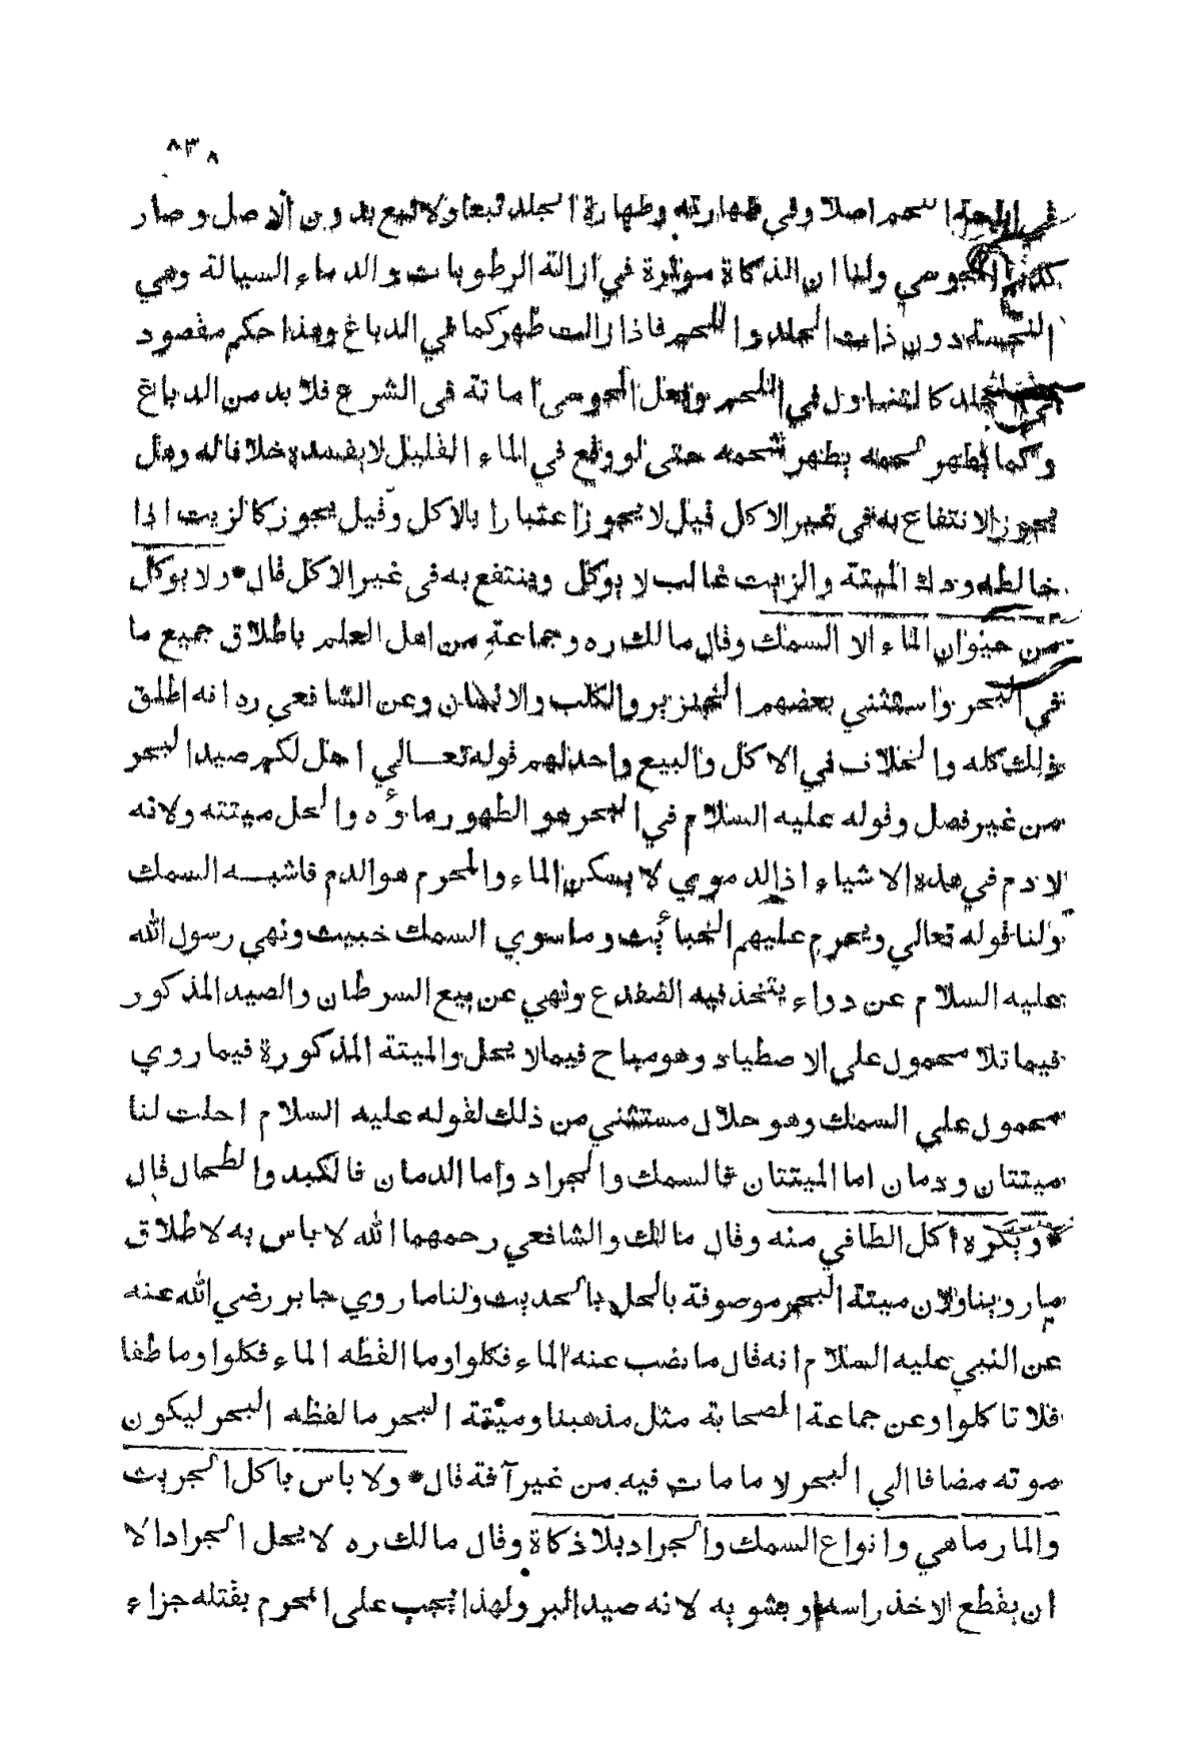 ٨٣٨
في اباحة اللحم اصلا وفي طهارته وطهارة الجلد تبعا ولا تبع بدون الاصل وصار
كذبح المجوسي ولنا ان الذكاة موثرة في ازالة الرطوبات والدماء السيالة وهي
النجسة دون ذات الجلد واللحم فاذا زالت طهر كما في الدباغ وهذا حكم مقصود
في الجلد كالتناول في اللحم وفعل المجوسى اماتة فى الشرع فلا بد من الدباغ
وكما يطهر لحمه يطهر شحمه حتى لو وقع في الماء القليل لا يفسده خلافا له وهل
يجوز الانتفاع به في غير الاكل قيل لا يجوز اعتبارا بالاكل وقيل يجوز كالزيت اذا
خالطه ودك الميتة والزيت غالب لا يوكل وينتفع به فى غير الاكل قال * ولا يوكل
من حيوان الماء الا السمك وقال مالك ره وجماعة من اهل العلم باطلاق جميع ما
في البحر واستثني بعضهم الخنزير والكلب والانسان وعن الشافعي ره انه اطلق
ذلك كله والخلاف في الاكل والبيع واحد لهم قوله تعــالي احل لكم صيد البحر
من غير فصل وقوله عليه السلام في البحر هو الطهور ماؤه والحل ميتته ولانه
لا دم في هذه الاشياء اذ الدموي لا يسكن الماء والمحرم هو الدم فاشبــه السمك
ولنا قوله تعالي ويحرم عليهم الخبائث وما سوي السمك خبيث ونهي رسول الله
عليه السلام عن دواء يتخذ فيه الضفدع ونهي عن بيع السرطان والصيد المذكور
فيما تلا محمول علي الاصطياد وهو مباح فيما لا يحل والميتة المذكورة فيما روي
محمول علي السمك وهو حلال مستثني من ذلك لقوله عليه السلام احلت لنا
ميتتان ودمان اما الميتتان فالسمك والجراد واما الدمان فالكبد والطحال قال
* ويكره اكل الطافي منه وقال مالك والشافعي رحمهما الله لا باس به لاطلاق
ما روينا ولان ميتة البحر موصوفة بالحل بالحديث ولنا ما روي جابر رضي الله عنه
عن النبي عليه السلام انه قال ما نضب عنه الماء فكلوا وما لفظه الماء فكلوا وما طفا
فلا تاكلوا وعن جماعة الصحابة مثل مذهبنا وميتة البحر ما لفظه البحر ليكون
موته مضافا الي البحر لا ما مات فيه من غير آفة قال * ولا باس باكل الجريث
والمارماهي وانواع السمك والجراد بلا ذكاة وقال مالك ره لا يحل الجراد الا
ان يقطع الاخذ راسه او يشويه لانه صيد البر ولهذا يجب على المحرم بقتله جزاء